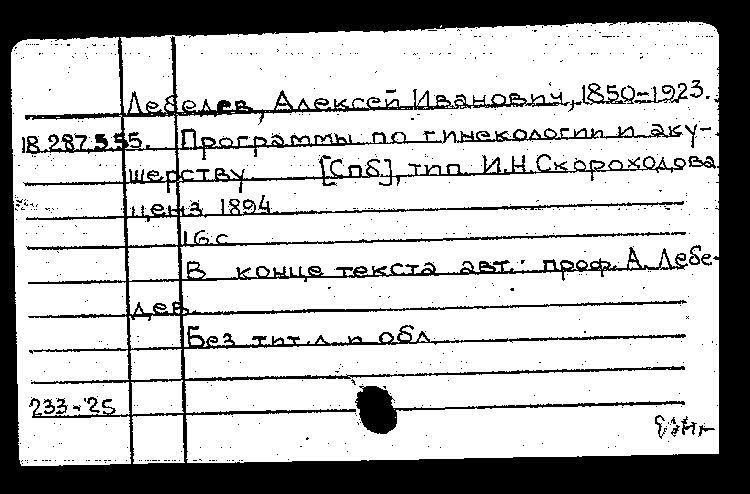 Лебедев, Алексей Иванович, 1850-1923.
18.287.5.55. Программы по гинекологии и аку-
шерству. [Спб], тип. И.Н.Скороходова
ценз. 1894.
16 с.
В конце текста авт.: проф. А. Лебе-
дев.
Без тит.л. и обл.
233-25